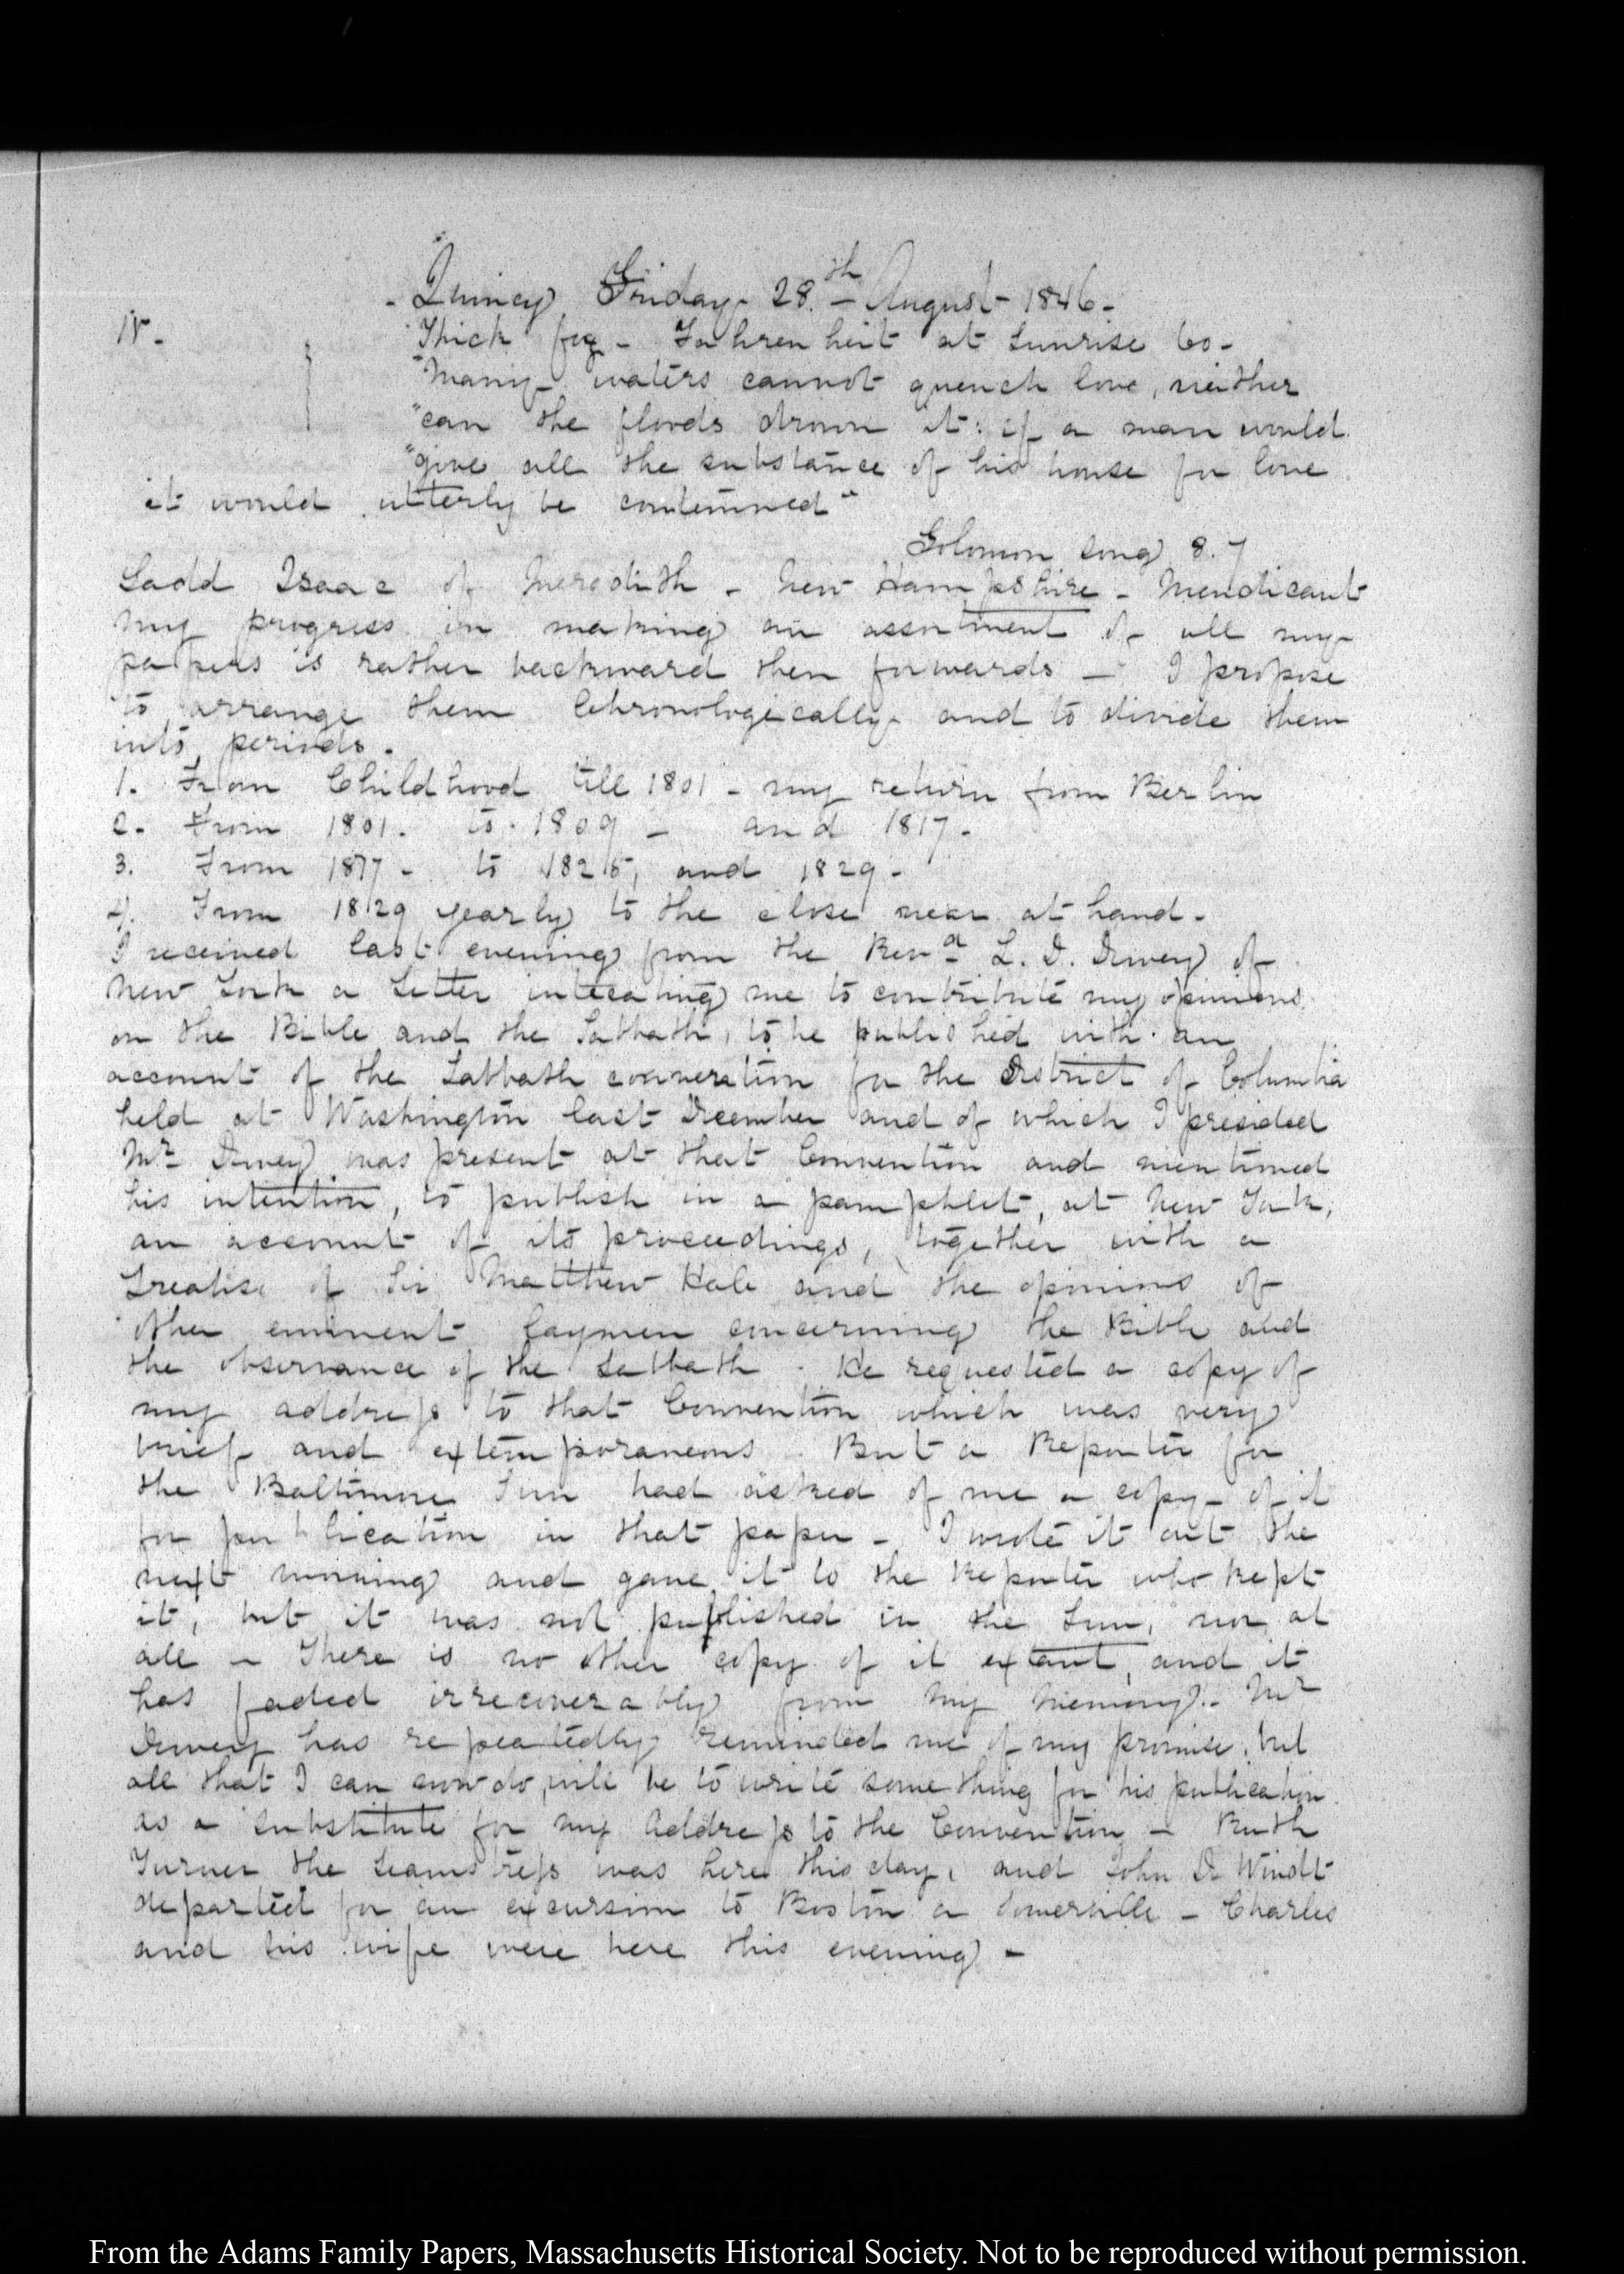 Quincy Friday 28th August 1846-
IV-
Thick fog - Fahrenheit at Sunrise 60-
"Many waters cannot quench love, neither
"can the floods drown it: if a man would
"give all the substance of his house for love
it would utterly be contemned"
Solomon song 8. 7
Ladd Isaac of Meredith - New Hampshire - Mendicant
My progress in making an assortment of all my
papers is rather backward then forwards - I propose
to arrange them Chronologically and to divide them
into periods.
1. From Childhood till 1801 - my return from Berlin
2. From 1801. to. 1809 - and 1817-
3. From 1817 - to 1825, and 1829-
4. From 1829 yearly to the close near at hand-
I received last evening from the Revd L. D. Dewey of
New York a Letter me to contribute my opinions
on the Bible and the Sabbath, to be published with an
account of the Sabbath convention for the District of Columbia
held at Washington last December and of which I presided
Mr Dewey was present at that Convention and mentioned
his intention, to publish in a pamphlet, at New York,
an account of its proceedings, together with a
Treatise of Sir Matthew Hale and the opinions of
other eminent laymen concerning the Bible and
the observance of the Sabbath. He requested a copy of
my address to that Convention which was very
brief and extemporaneous. But a Reporter for
the Baltimore Sun had asked of me a copy - of it
for publication in that paper - I wrote it out the
next morning and gave it to the Reporter who kept
it, but it was not published in the Sun, nor at
all - There is no other copy of it extant, and it
has faded irrecoverably from my memory - Mr
Dewey has repeatedly reminded me of my promise, but
all that I can now do, will be to write something for his publication
as a substitute for my Address to the Convention - Ruth
Turner the Seamstress was here this day, and John D Windt
departed for an excursion to Boston a Somerville - Charles
and his wife were here this evening -
From the Adams Family Papers, Massachusetts Historical Society. Not to be reproduced without permission.